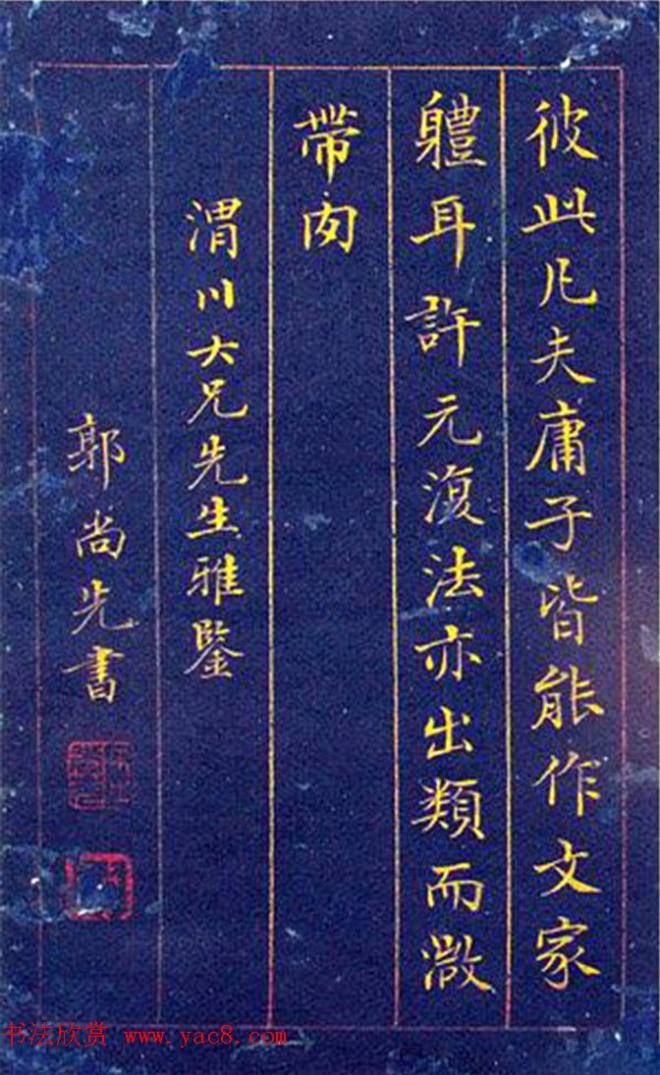 彼此凡夫庸子皆能作文家
軆耳許元復法亦出類而激
帶肉
渭川大兄先生雅鑒
郭尚先書
书法欣赏 www.yac8.com